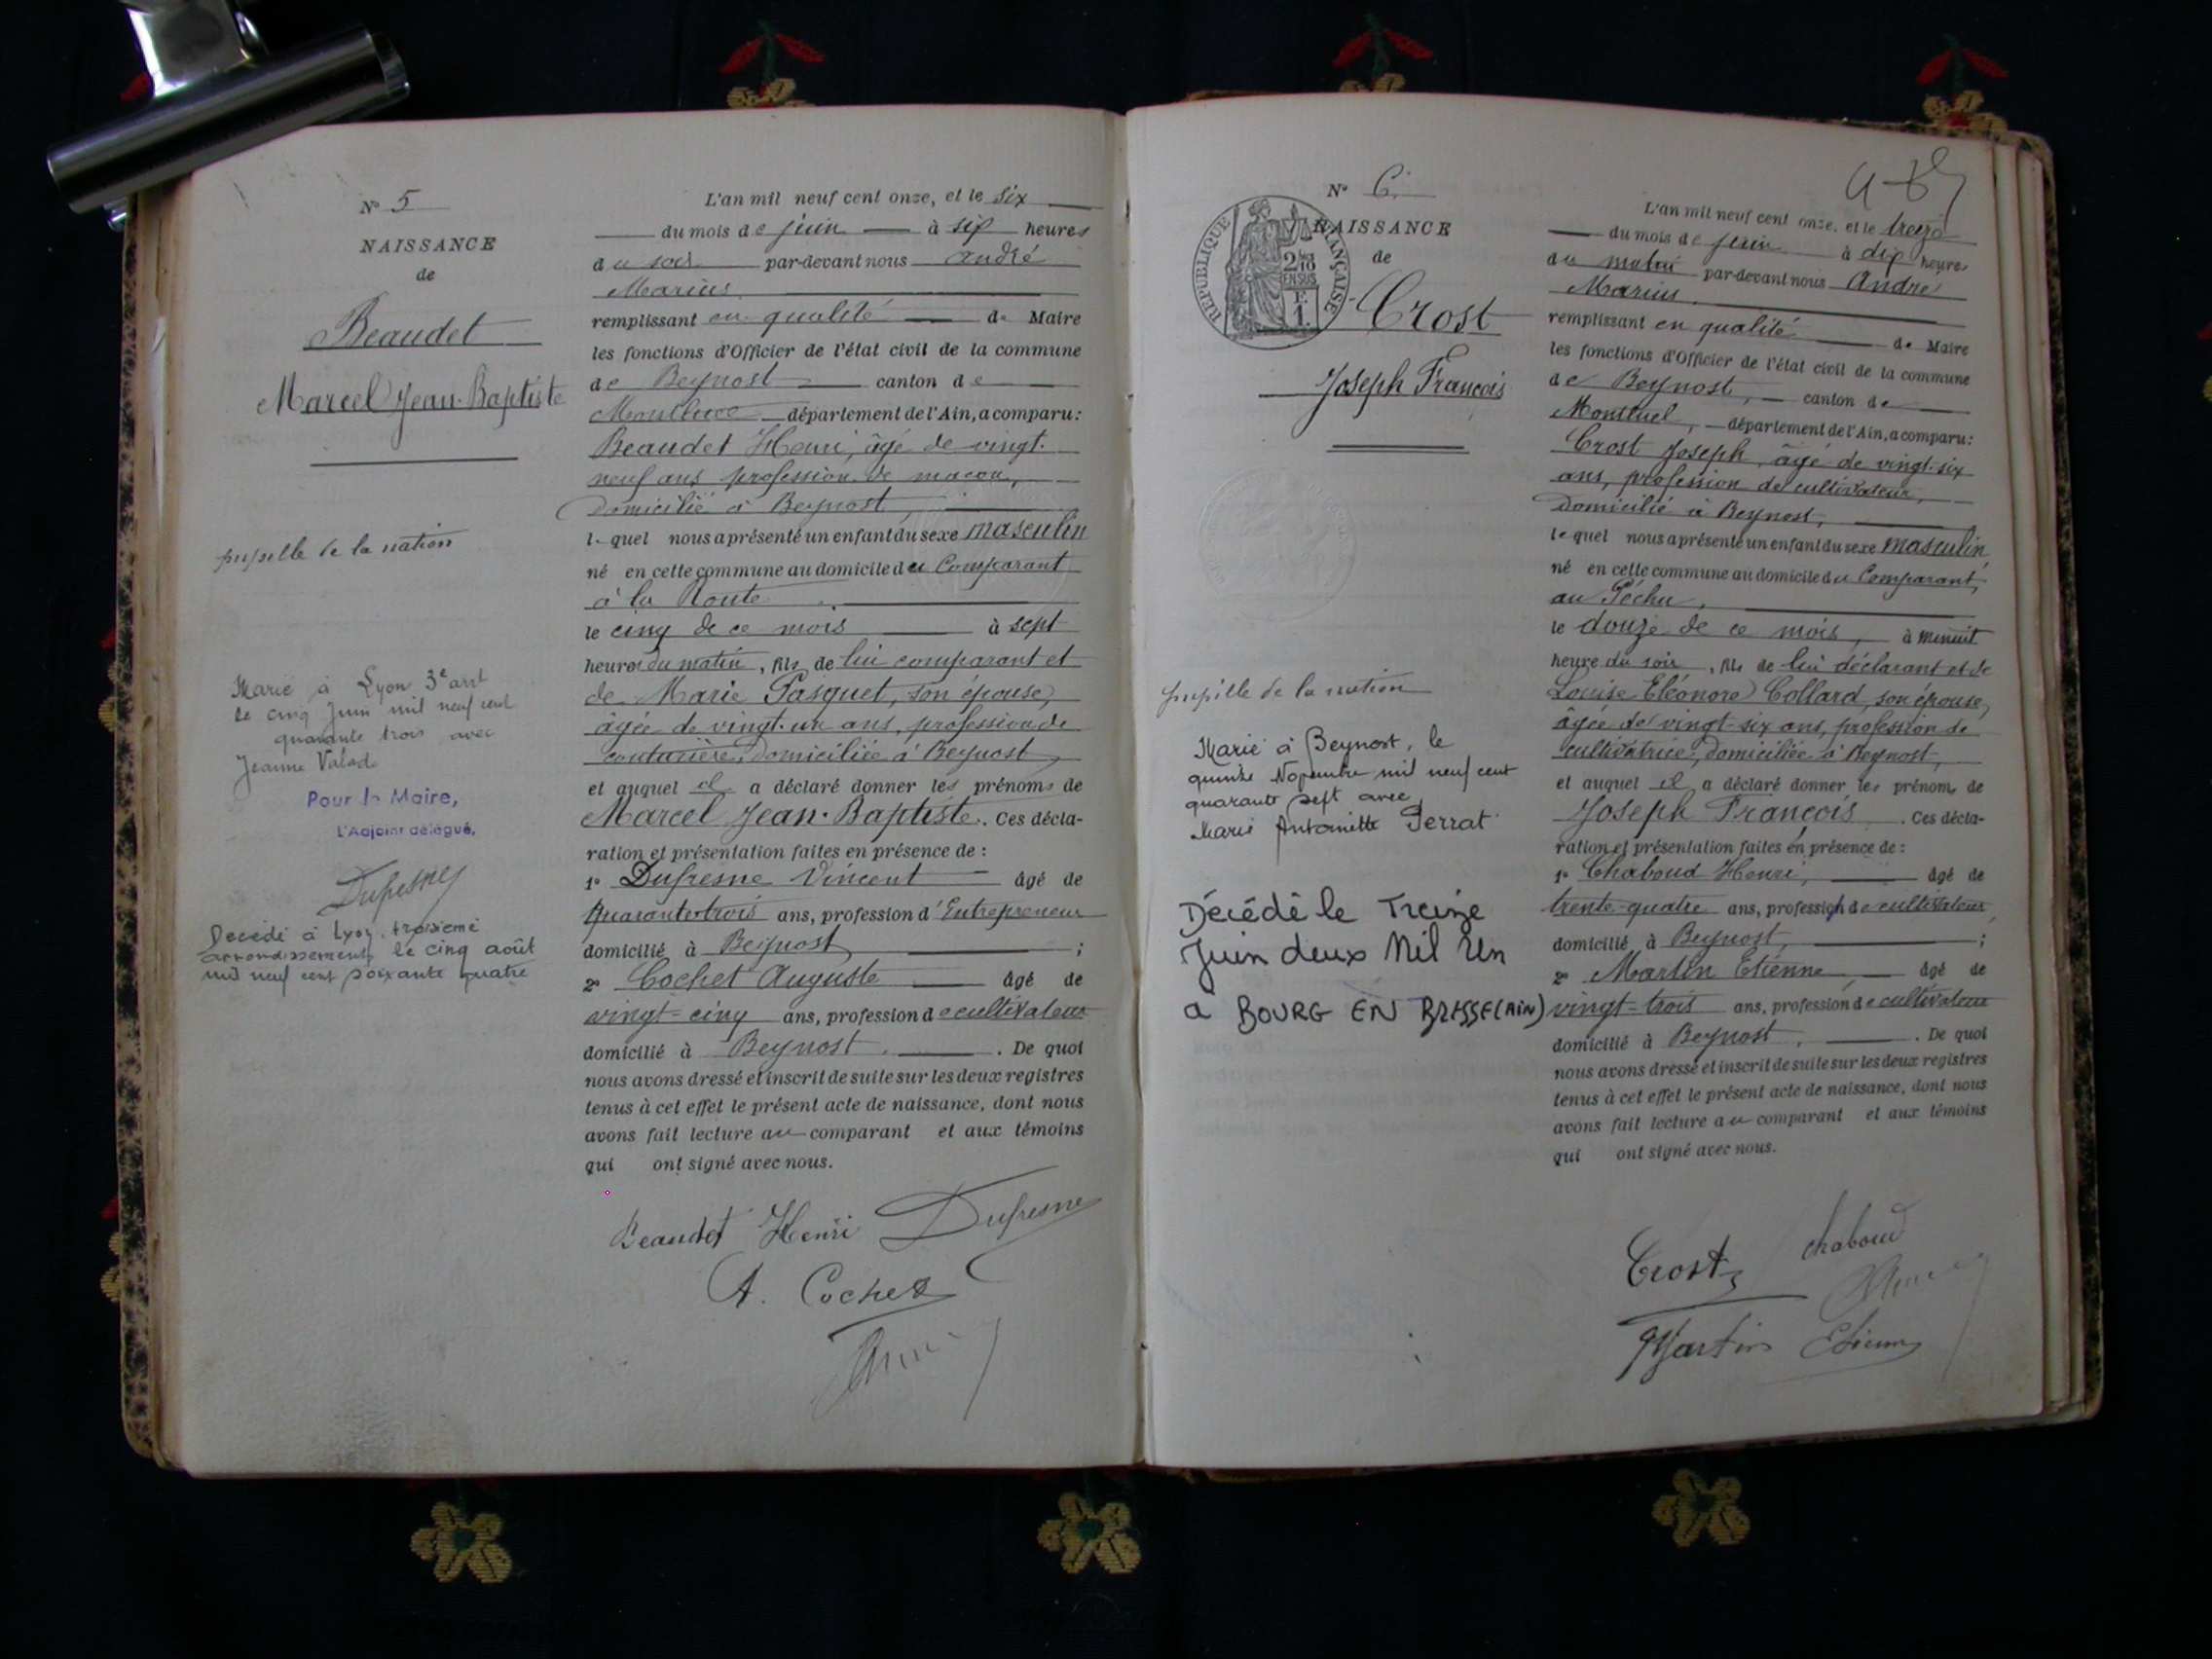 N° 5
NAISSANCE
de
Beaudet
Marcel Jean-Baptiste
pupille de la nation
Marié à Lyon 3e arrt
le cinq Juin mil neuf cent
quarante trois avec
Jeanne Valad
Pour le Maire,
L'Adjoint délégué,
Dufresne
Décédé à Lyon troisième
arrondissement, le cinq août
mil neuf cent soixante quatre
L'an mil neuf cent onze, et le six
du mois de juin à six heures
du soir par-devant nous André
Marius
remplissant en qualité de Maire
les fonctions d'Officier de l'état civil de la commune
de Beynost canton de
Montluel département de l'Ain, a comparu :
Beaudet Henri, âgé de vingt-
neuf ans profession de maçon,
domicilié à Beynost,
lequel nous a présenté un enfant du sexe masculin
né en cette commune au domicile du Comparant
à la Route
le cinq de ce mois à sept
heures du matin, fils de lui comparant et
de Marie Pasquet, son épouse,
âgée de vingt-un ans, profession de
couturière, domiciliée à Beynost
et auquel il a déclaré donner les prénoms de
Marcel Jean-Baptiste. Ces décla-
ration et présentation faites en présence de :
1° Dufresne Vincent âgé de
Quarante-trois ans, profession d'Entrepreneur
domicilié à Beynost ;
2° Cochet Auguste âgé de
vingt-cinq ans, profession de cultivateur
domicilié à Beynost. De quoi
nous avons dressé et inscrit de suite sur les deux registres
tenus à cet effet le présent acte de naissance, dont nous
avons fait lecture au comparant et aux témoins
qui ont signé avec nous.
Beaudet Henri Dufresne
A. Cochet
N° 6
RÉPUBLIQUE FRANÇAISE
2/10 EN SUS
F. 1
NAISSANCE
de
Crost
Joseph François
pupille de la nation
Marié à Beynost, le
quinze Novembre mil neuf cent
quarante sept avec
Marie Antoinette Perrat
Décédé le Treize
Juin deux Mil Un
à BOURG EN BRESSE (AIN)
L'an mil neuf cent onze, et le treize
du mois de juin à dix heures
du matin par-devant nous André
Marius
remplissant en qualité de Maire
les fonctions d'Officier de l'état civil de la commune
de Beynost, canton de
Montluel, département de l'Ain, a comparu :
Crost Joseph, âgé de vingt-six
ans, profession de cultivateur,
domicilié à Beynost,
lequel nous a présenté un enfant du sexe masculin
né en cette commune au domicile du Comparant,
au Péchu,
le douze de ce mois, à minuit
heure du soir, fils de lui déclarant et de
Louise Eléonore Collard, son épouse,
âgée de vingt-six ans, profession de
cultivatrice, domiciliée à Beynost,
et auquel il a déclaré donner les prénoms de
Joseph François. Ces décla-
ration et présentation faites en présence de :
1° Chaboud Henri, âgé de
trente-quatre ans, profession de cultivateur
domicilié à Beynost, ;
2° Martin Etienne, âgé de
vingt-trois ans, profession de cultivateur
domicilié à Beynost. De quoi
nous avons dressé et inscrit de suite sur les deux registres
tenus à cet effet le présent acte de naissance, dont nous
avons fait lecture au comparant et aux témoins
qui ont signé avec nous.
Crost Chaboud
Martin Etienne